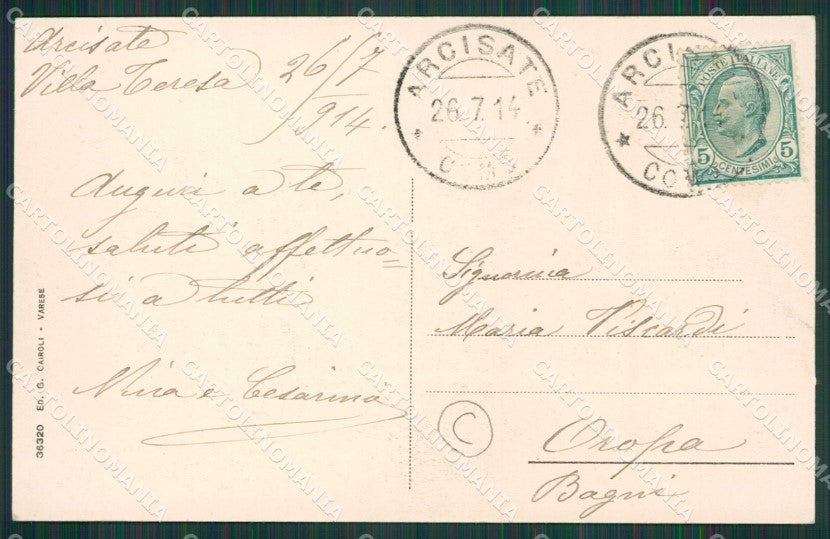 Arcisate
Villa Teresa 26/7
914.
Auguri a te,
saluti affettuo=
si a tutti
Nina e Cesarina
36320 Ed. G. Cairoli - Varese
ARCISATE
26.7.14
COMO
ARCI
26.7
COM
POSTE ITALIANE
5 CENTESIMI 5
Signorina
Maria Viscardi
C
Oropa
Bagni
CARTOLINOMANIA